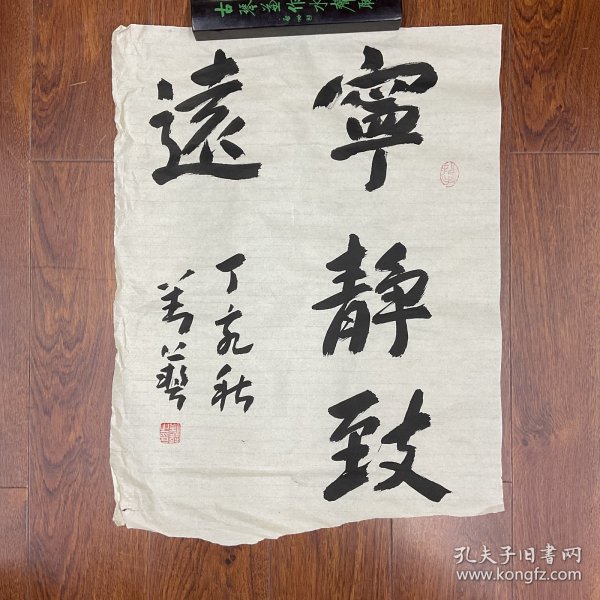 寧靜致
遠
丁亥秋
孔夫子旧书网
www.kongfz.com